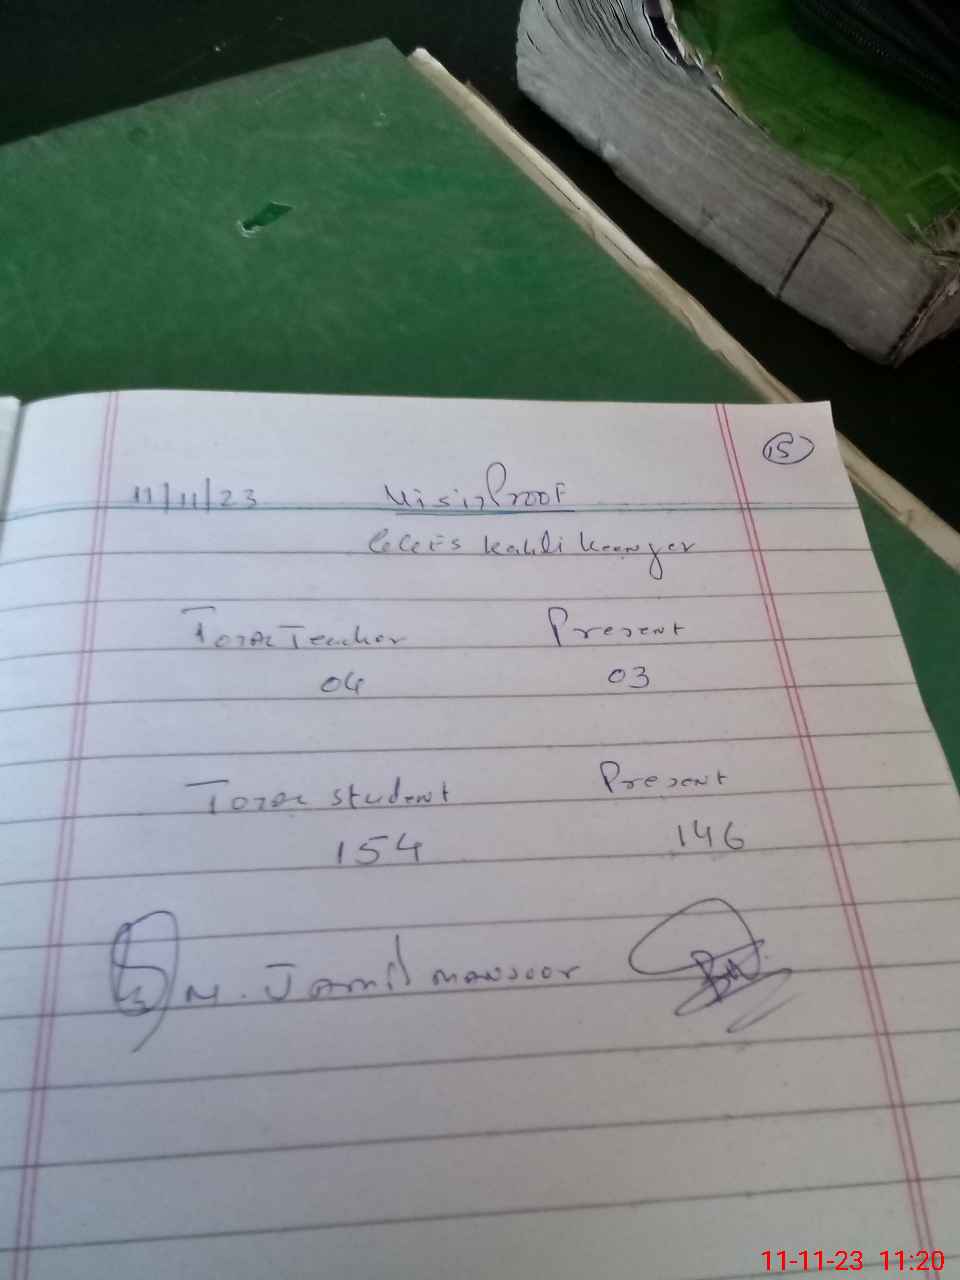 15
11/11/23 Visit Proof
Kahli
Total Teacher Present
04 03
Total Student Present
154 146
M. Jamil Mansoor
11-11-23 11:20